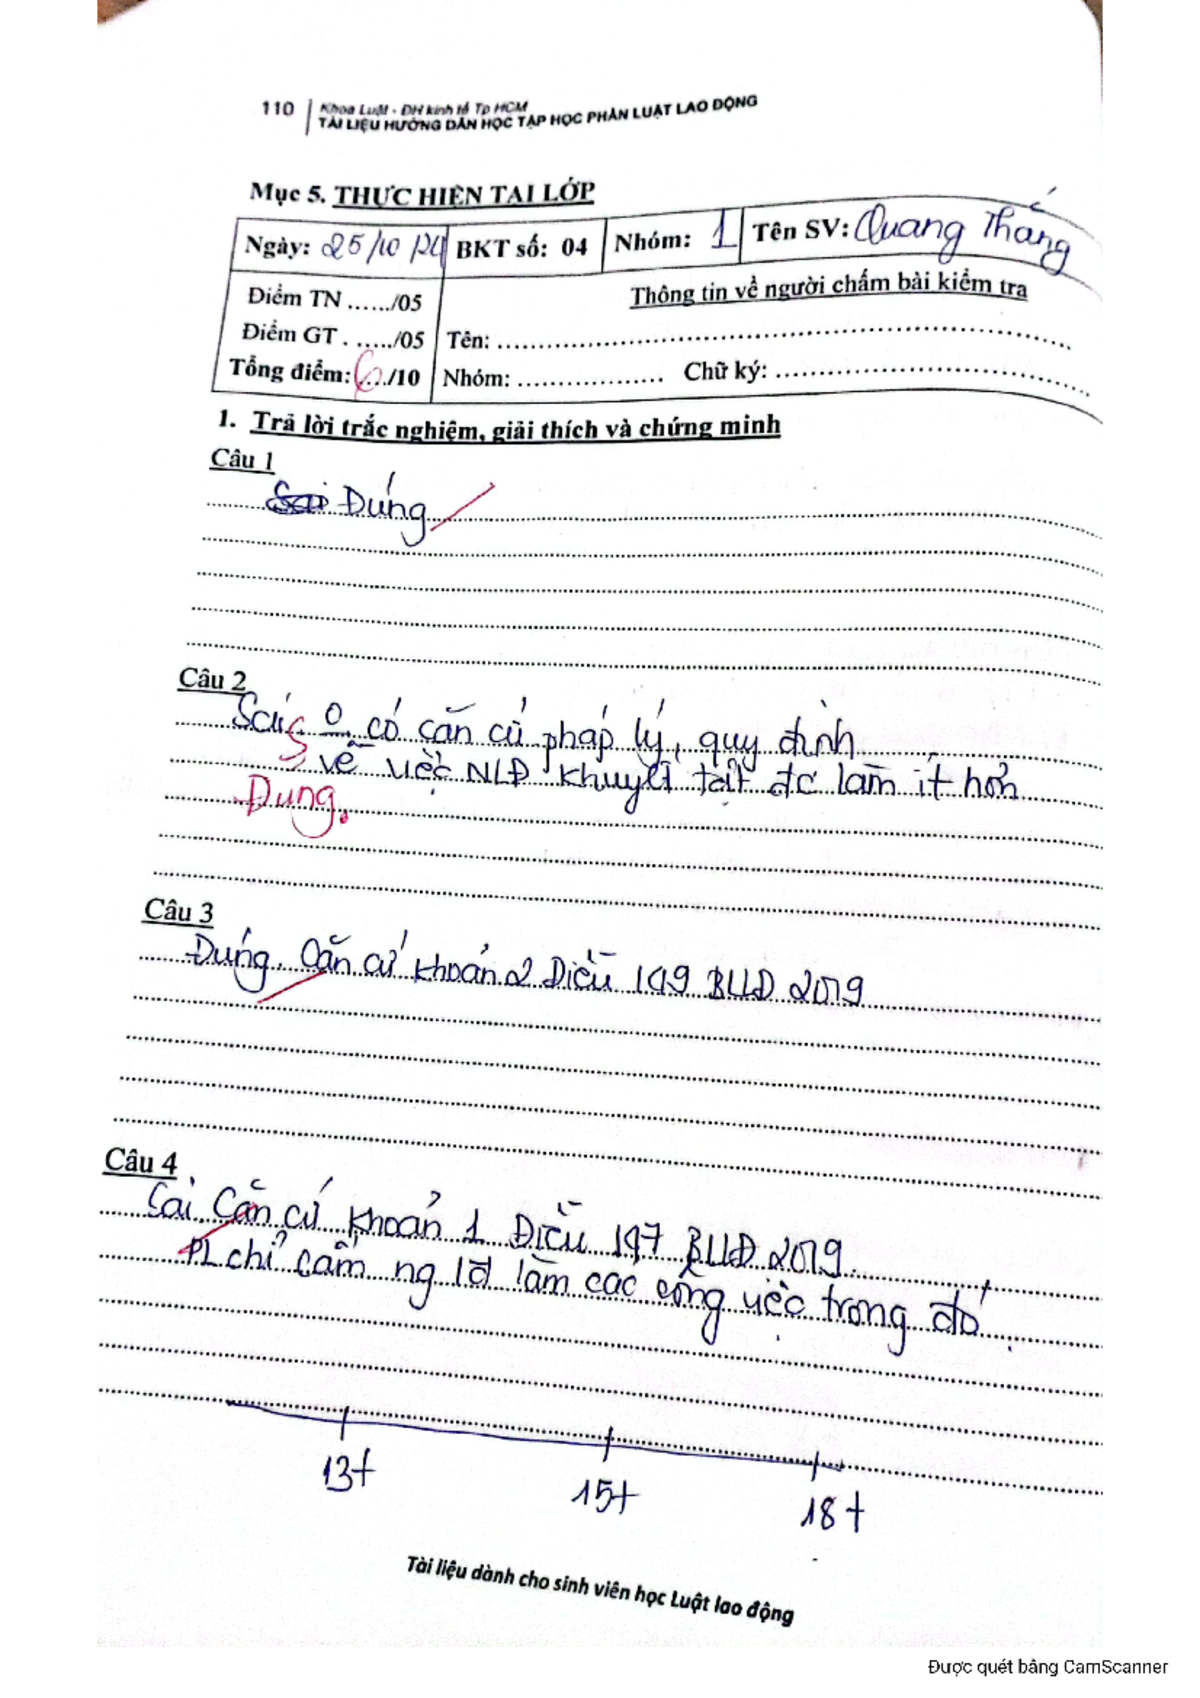 110 | Khoa Luật - ĐH kinh tế Tp HCM
TÀI LIỆU HƯỚNG DẪN HỌC TẬP HỌC PHẦN LUẬT LAO ĐỘNG
Mục 5. THỰC HIỆN TẠI LỚP
Ngày: 25/10/24 BKT số: 04 Nhóm: 1 Tên SV: Quang Thắng
Thông tin về người chấm bài kiểm tra
Điểm TN ....../05
Điểm GT . ...../05 Tên: ..............................
Tổng điểm: 6/10 Nhóm: .................. Chữ ký: ..............................
1. Trả lời trắc nghiệm, giải thích và chứng minh
Câu 1
Sai Đúng
Câu 2
Sai, 0 có căn cứ pháp lý, quy định
về việc NLĐ khuyết tật đc làm ít hơn
Đúng.
Câu 3
Đúng. Căn cứ khoản 2 Điều 149 BLLĐ 2019
Câu 4
Sai Căn cứ khoản 1 Điều 147 BLLĐ 2019.
PL chỉ cấm ng lđ làm các công việc trong đó.
13+ 15+ 18+
Tài liệu dành cho sinh viên học Luật lao động
Được quét bằng CamScanner